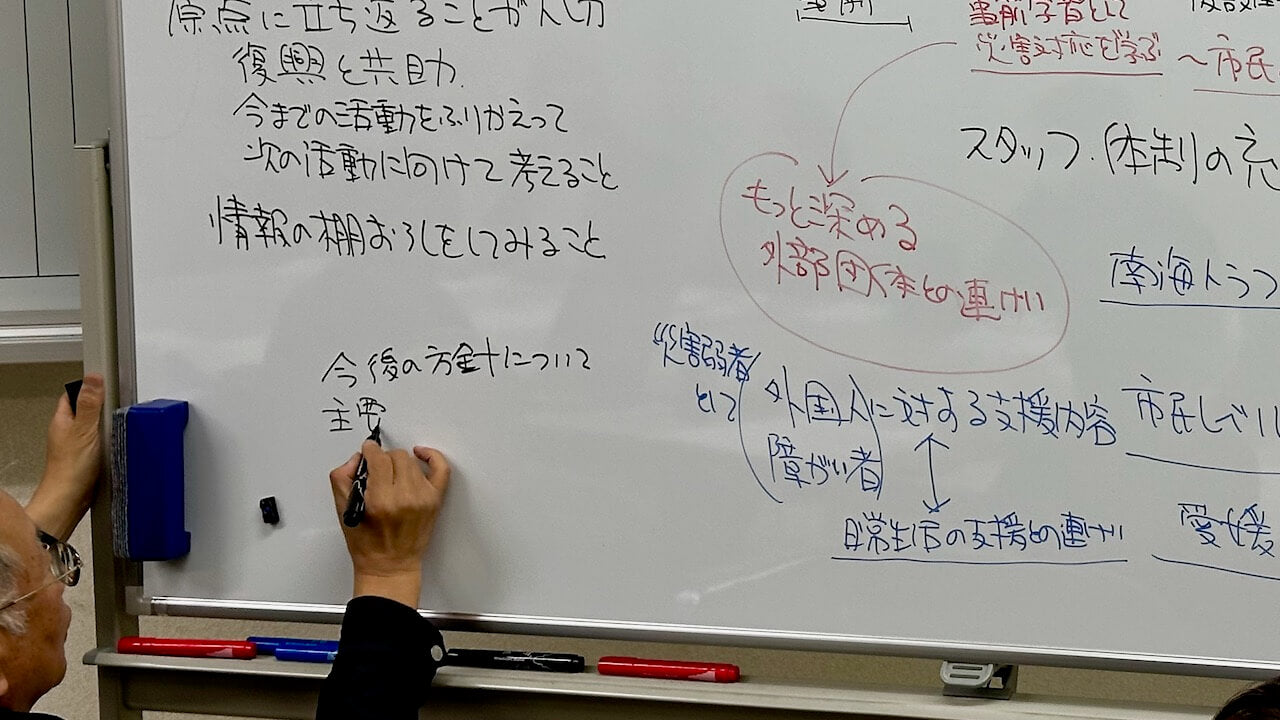 原点に立ち返ることが大切
復興と共助
今までの活動をふりかえって
次の活動に向けて考えること
情報の棚おろしをしてみること
今後の方針について
主要
として
災害対応を学ぶ
～市民
スタッフ・体制の充
もっと深める
外部団体との連けい
南海トラフ
"災害弱者
として
外国人に対する支援内容
障がい者
市民レベル
日常生活の支援との連けい
愛媛